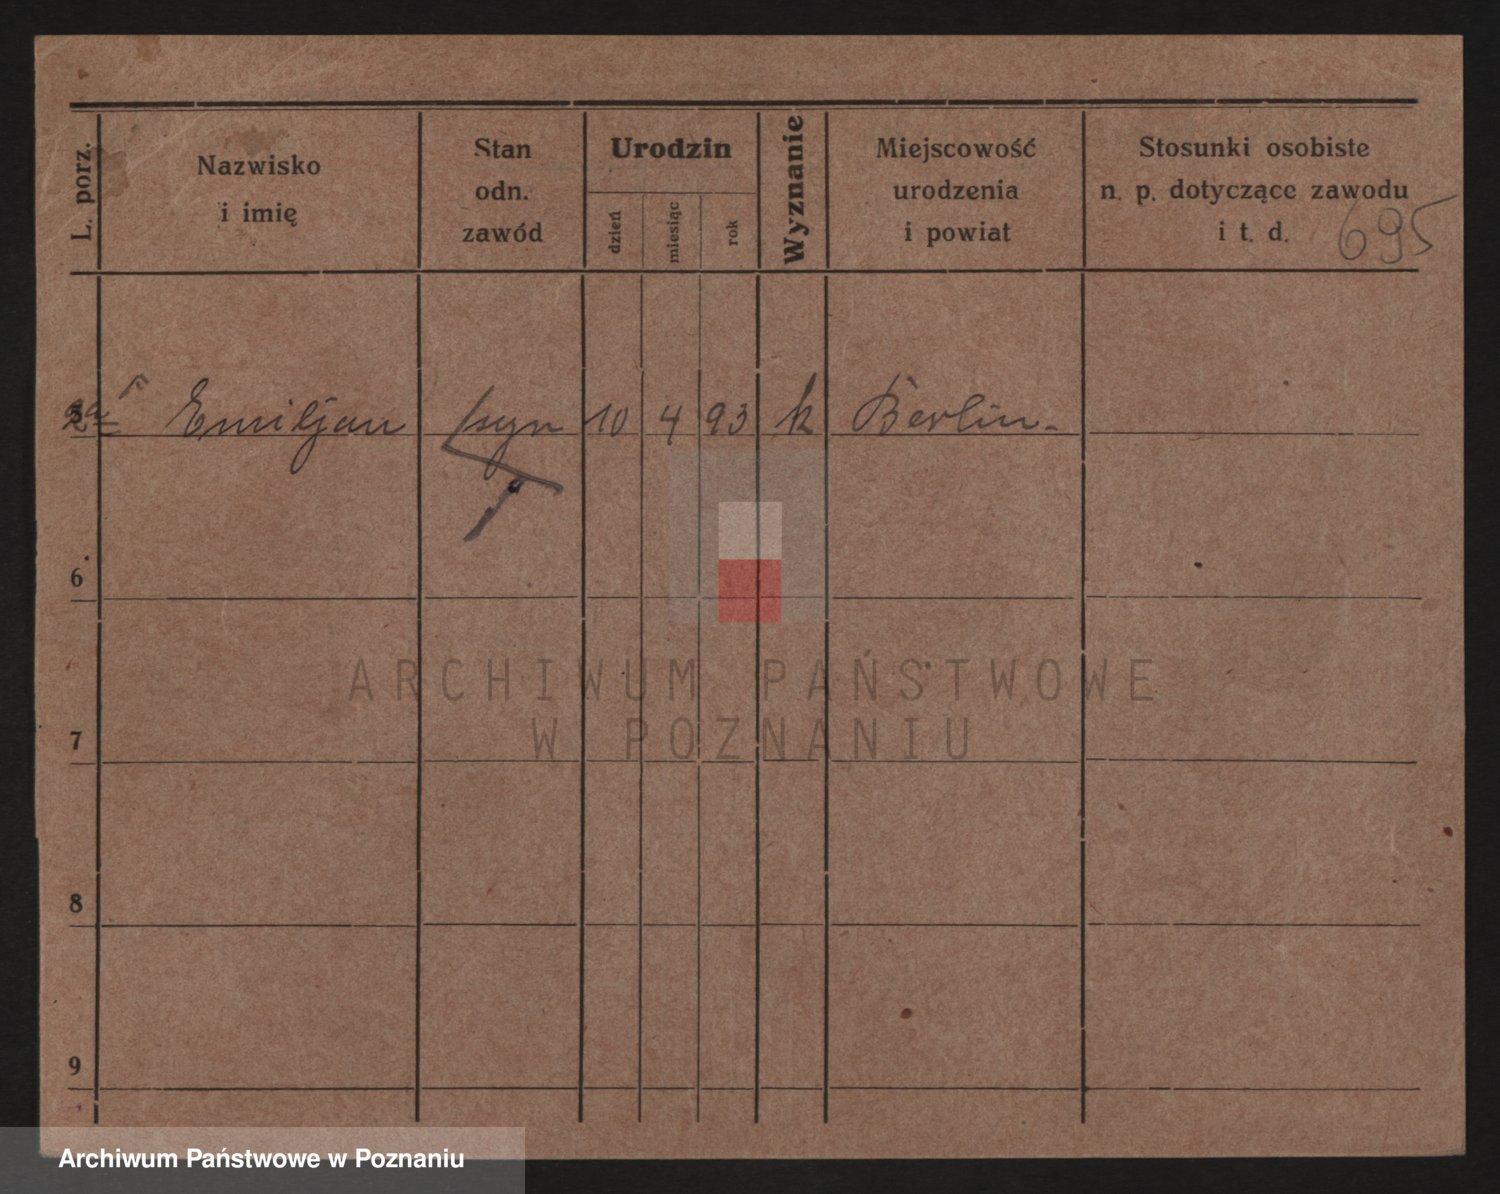 L. porz.
Nazwisko
i imię
Stan
odn.
zawód
Urodzin
dzień
miesiąc
rok
Wyznanie
Miejscowość
urodzenia
i powiat
Stosunki osobiste
n. p. dotyczące zawodu
i t. d.
695
Emiljan syn 10 4 93 k Berlin.
6
7
8
9
ARCHIWUM PAŃSTWOWE
W POZNANIU
Archiwum Państwowe w Poznaniu